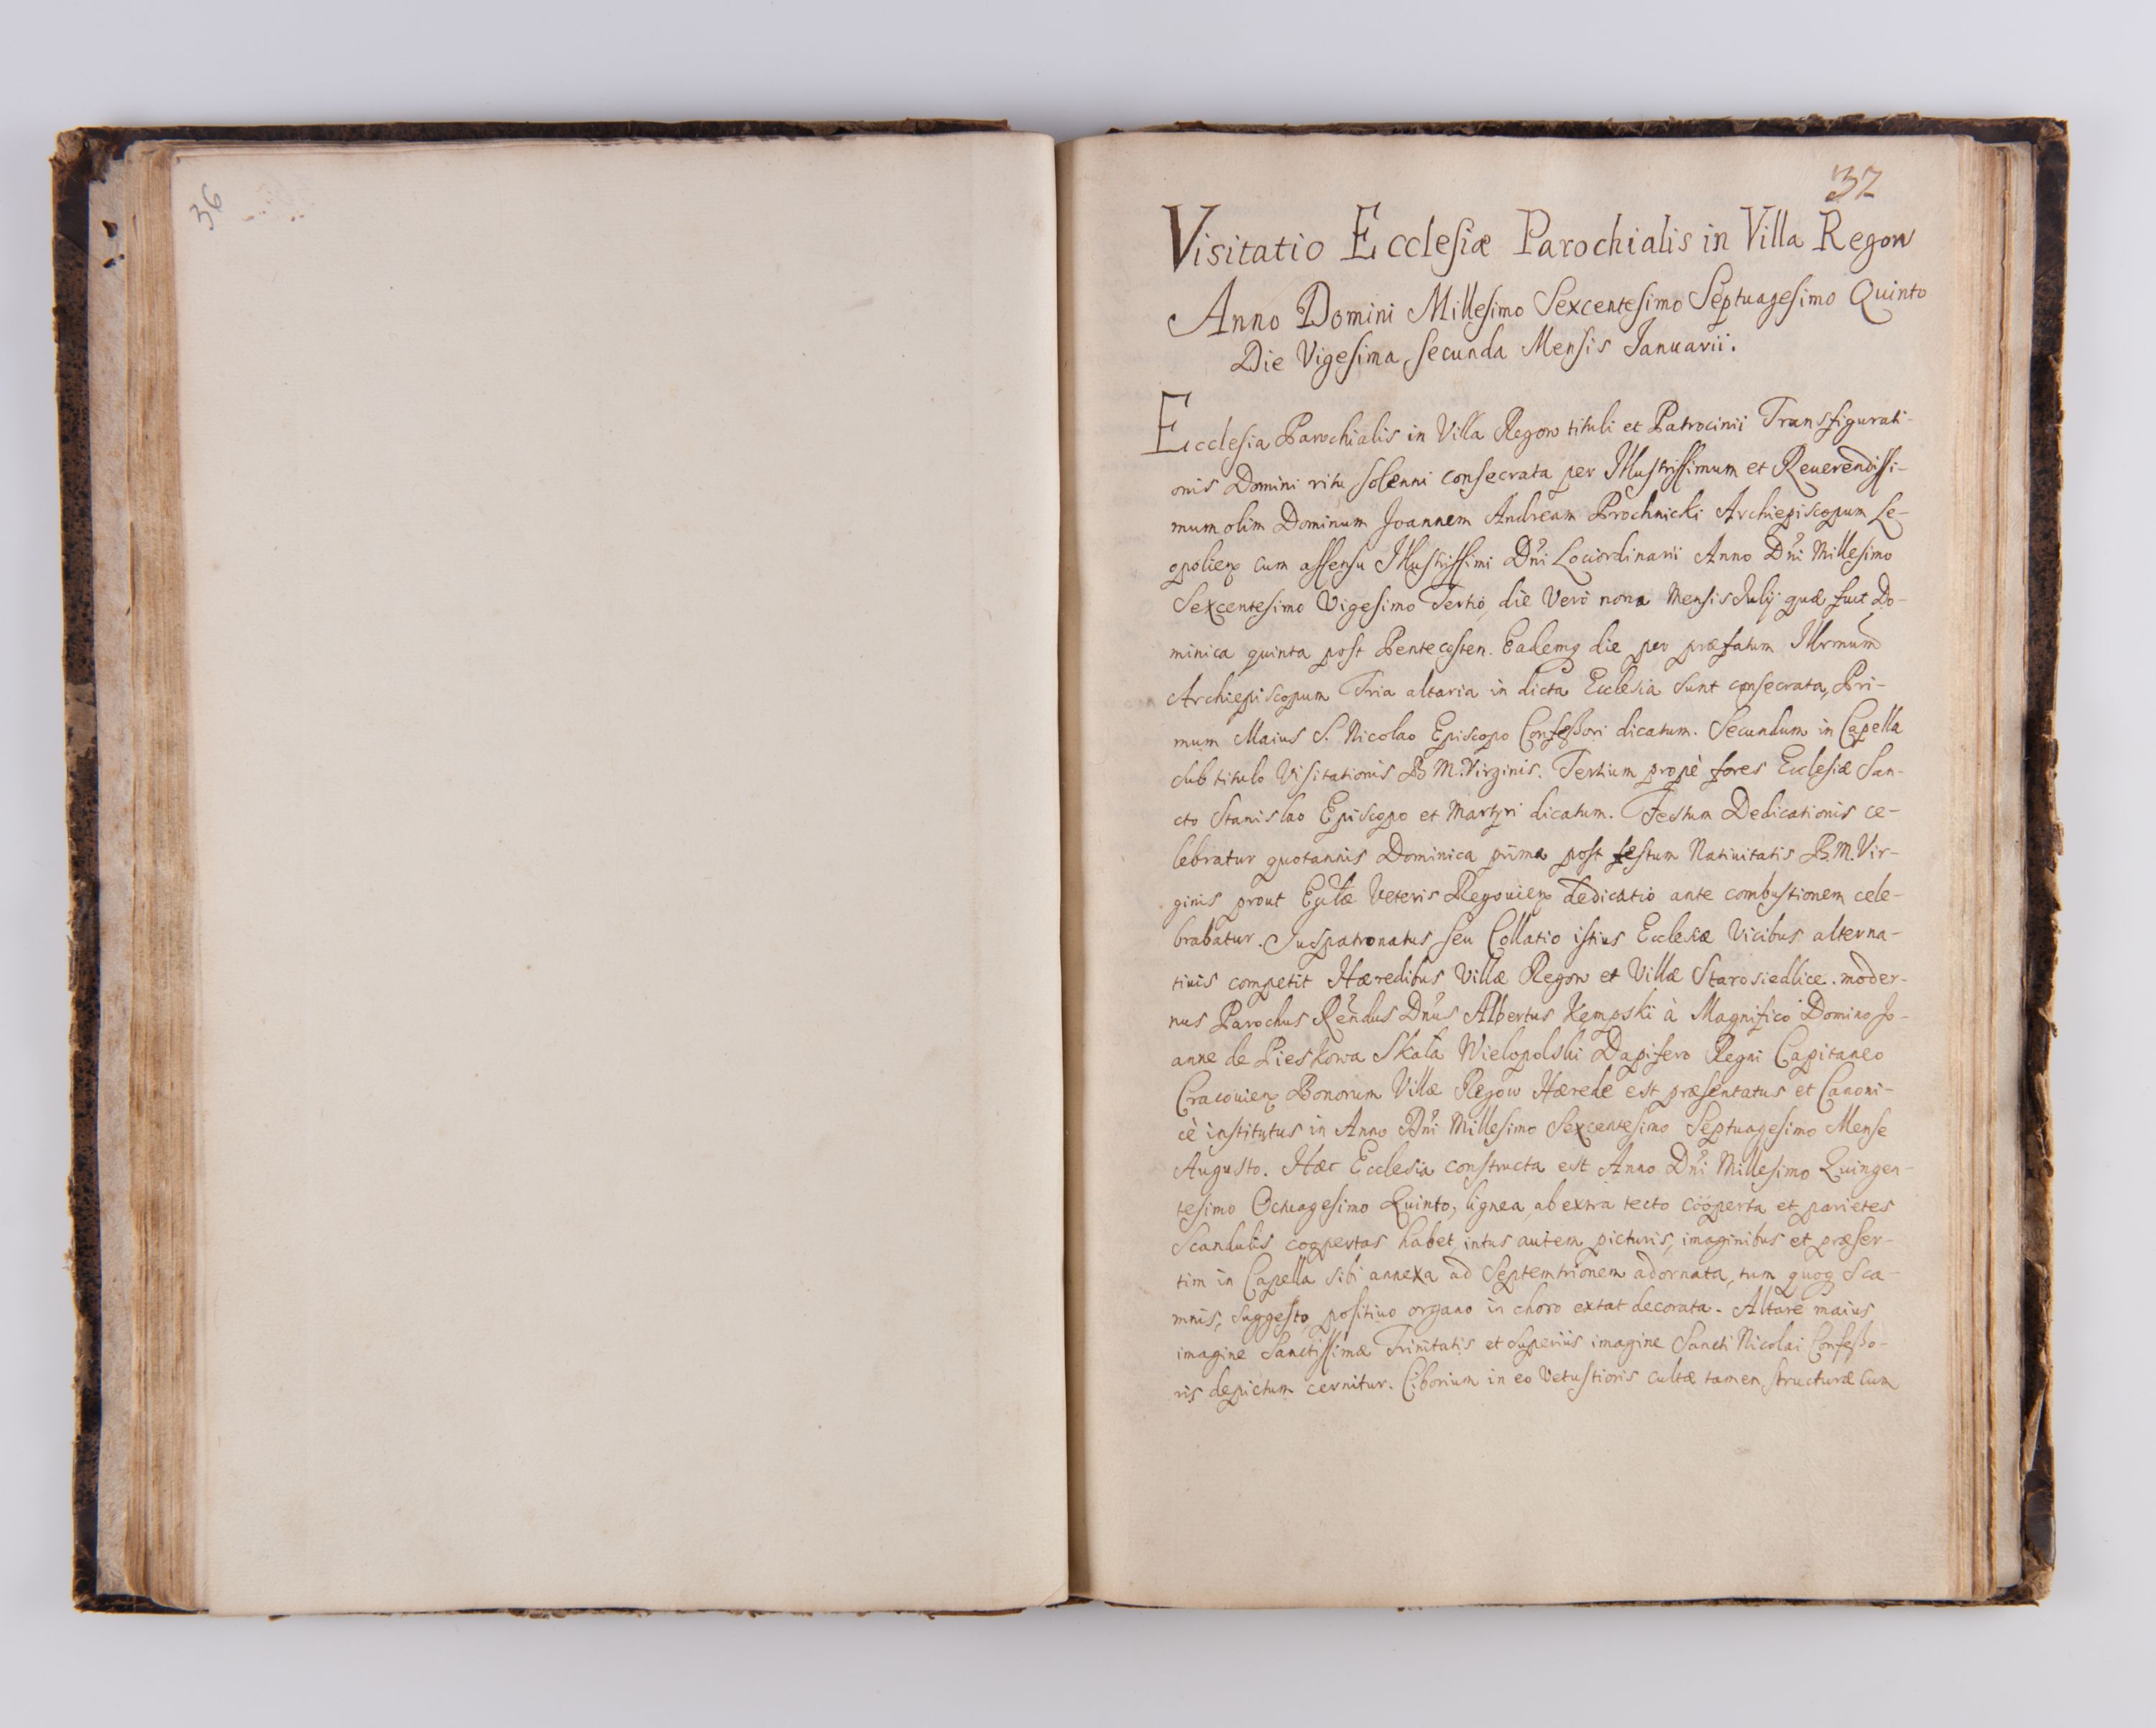 36
37
Visitatio Ecclesiæ Parochialis in Villa Regow
Anno Domini Millesimo Sexcentesimo Septuagesimo Quinto
Die Vigesima secunda Mensis Januarii.
Ecclesia Parochialis in Villa Regow tituli et Patrocinii Transfigurati-
onis Domini ritu solenni consecrata per Illustrissimum et Reuerendissi-
mum olim Dominum Joannem Andream Prochnicki Archiepiscopum Le-
opolien cum assensu Illustrissimi Dni Lociordinarii Anno Dni Millesimo
Sexcentesimo Vigesimo Tertio, die Verò nona Mensis Julij quæ fuit Do-
minica quinta post Pentecosten. Eademq die per præfatum Illrmum
Archiepiscopum Tria altaria in dicta Ecclesia sunt consecrata, Pri-
mum Maius S. Nicolao Episcopo Confeßori dicatum. Secundum in Capella
sub titulo Visitationis B M. Virginis. Tertium propè fores Ecclesiæ San-
cto Stanislao Episcopo et Martyri dicatum. Festum Dedicationis ce-
lebratur quotannis Dominica prima post festum Natiuitatis B. M. Vir-
ginis prout Ecclæ Veteris Regouien dedicatio ante combustionem cele-
brabatur. Juspatronatus seu Collatio istius Ecclesiæ Vicibus alterna-
tiuis competit Hæredibus Villæ Regow et Villæ Starosiedlice. moder-
nus Parochus Rendus Dnus Albertus Kempski à Magnifico Domino Jo-
anne de Pieskowa Skała Wielopolski Dapifero Regni Capitaneo
Cracouien Bonorum Villæ Regow Hærede est præsentatus et Canoni-
cè institutus in Anno Dni Millesimo Sexcentesimo Septuagesimo Mense
Augusto. Hæc Ecclesia constructa est Anno Dni Millesimo Quingen-
tesimo Octuagesimo Quinto, lignea, ab extra tecto coóperta et parietes
Scandulis coopertas habet, intus autem picturis, imaginibus et præser-
tim in Capella sibi annexa ad Septemtrionem adornata, tum quoq Sca-
mnis, suggesto, positiuo organo in choro extat decorata. Altare maius
imagine Sanctissimæ Trinitatis et superiùs imagine Sancti Nicolai Confeßo-
ris depictum cernitur. Ciborium in eo Vetustioris cultæ tamen structuræ cum